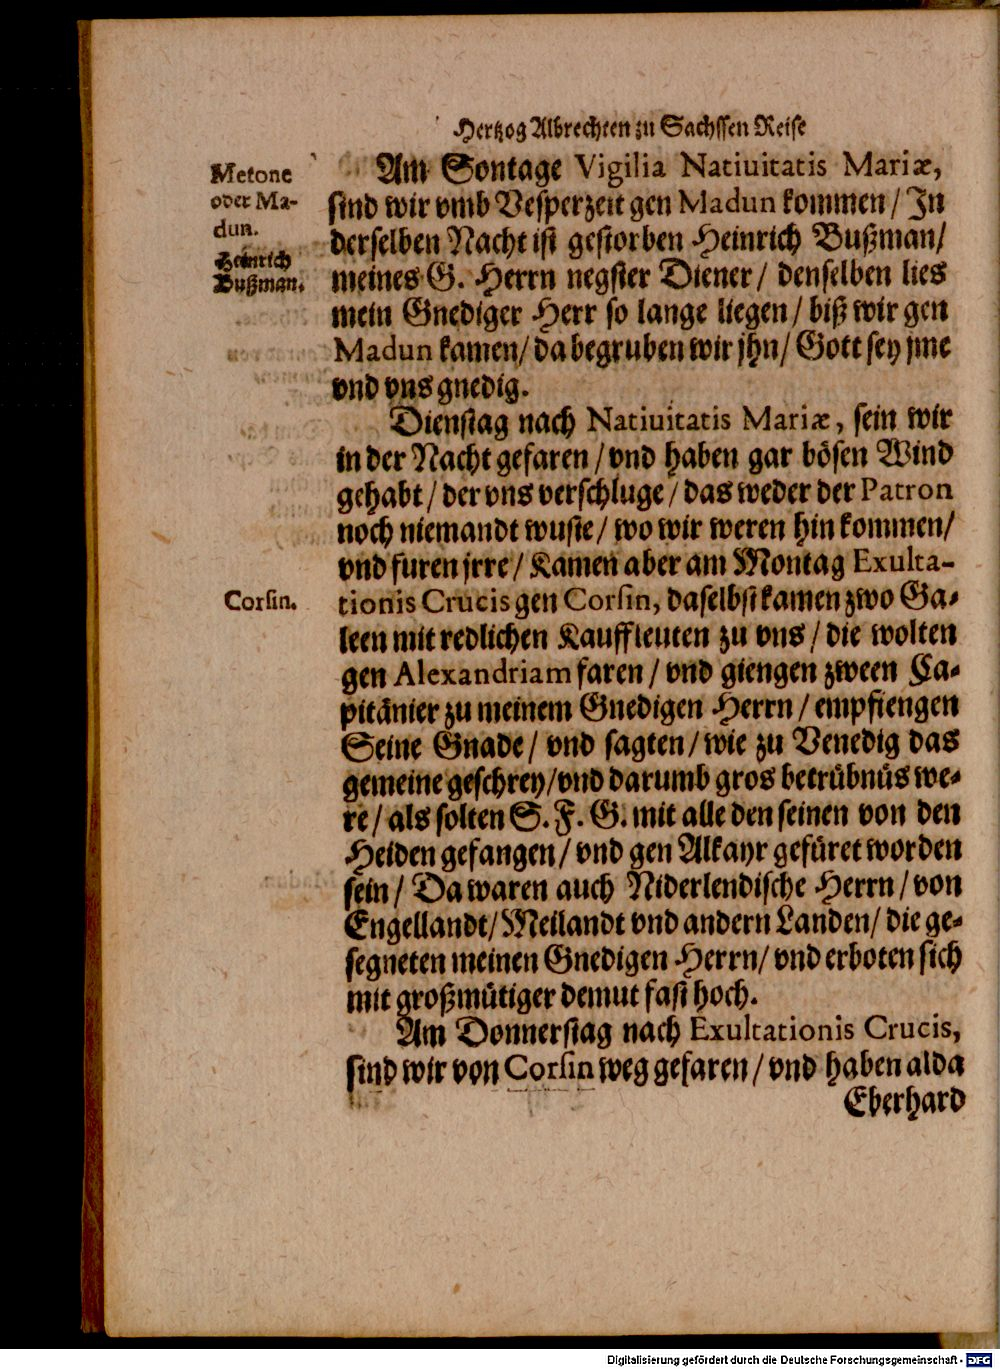 Hertzog Albrechten zu Sachssen Reise
Metone
oder Ma-
dun.
Heinrich
Bußman.
Am Sontage Vigilia Natiuitatis Mariæ,
sind wir vmb Vesperzeit gen Madun kommen / In
derselben Nacht ist gestorben Heinrich Bußman /
meines G. Herrn negster Diener / denselben lies
mein Gnediger Herr so lange liegen / biß wir gen
Madun kamen / da begruben wir jhn / Gott sey jme
vnd vns gnedig.
Dienstag nach Natiuitatis Mariæ, sein wir
in der Nacht gefaren / vnd haben gar bösen Wind
gehabt / der vns verschluge / das weder der Patron
noch niemandt wuste / wo wir weren hin kommen /
vnd furen jrre / Kamen aber am Montag Exulta-
Corsin.
tionis Crucis gen Corsin, daselbst kamen zwo Ga-
leen mit redlichen Kauffleuten zu vns / die wolten
gen Alexandriam faren / vnd giengen zween Ca-
pitänier zu meinem Gnedigen Herrn / empfiengen
Seine Gnade / vnd sagten / wie zu Venedig das
gemeine geschrey / vnd darumb gros betrübnüs we-
re / als solten S. F. G. mit alle den seinen von den
Heiden gefangen / vnd gen Alkayr gefüret worden
sein / Da waren auch Niderlendische Herrn / von
Engellandt / Meilandt vnd andern Landen / die ge-
segneten meinen Gnedigen Herrn / vnd erboten sich
mit großmütiger demut fast hoch.
Am Donnerstag nach Exultationis Crucis,
sind wir von Corsin weg gefaren / vnd haben alda
Eberhard
Digitalisierung gefördert durch die Deutsche Forschungsgemeinschaft - DFG